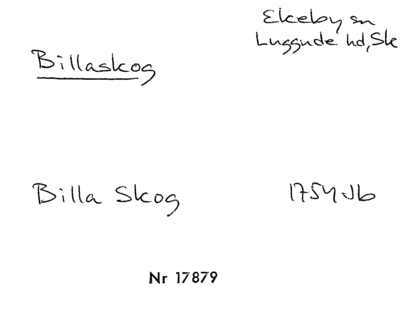 Ekeby sn
Luggude hd, Sk
Billaskog
Billa Skog 1754 Jb
Nr 17879